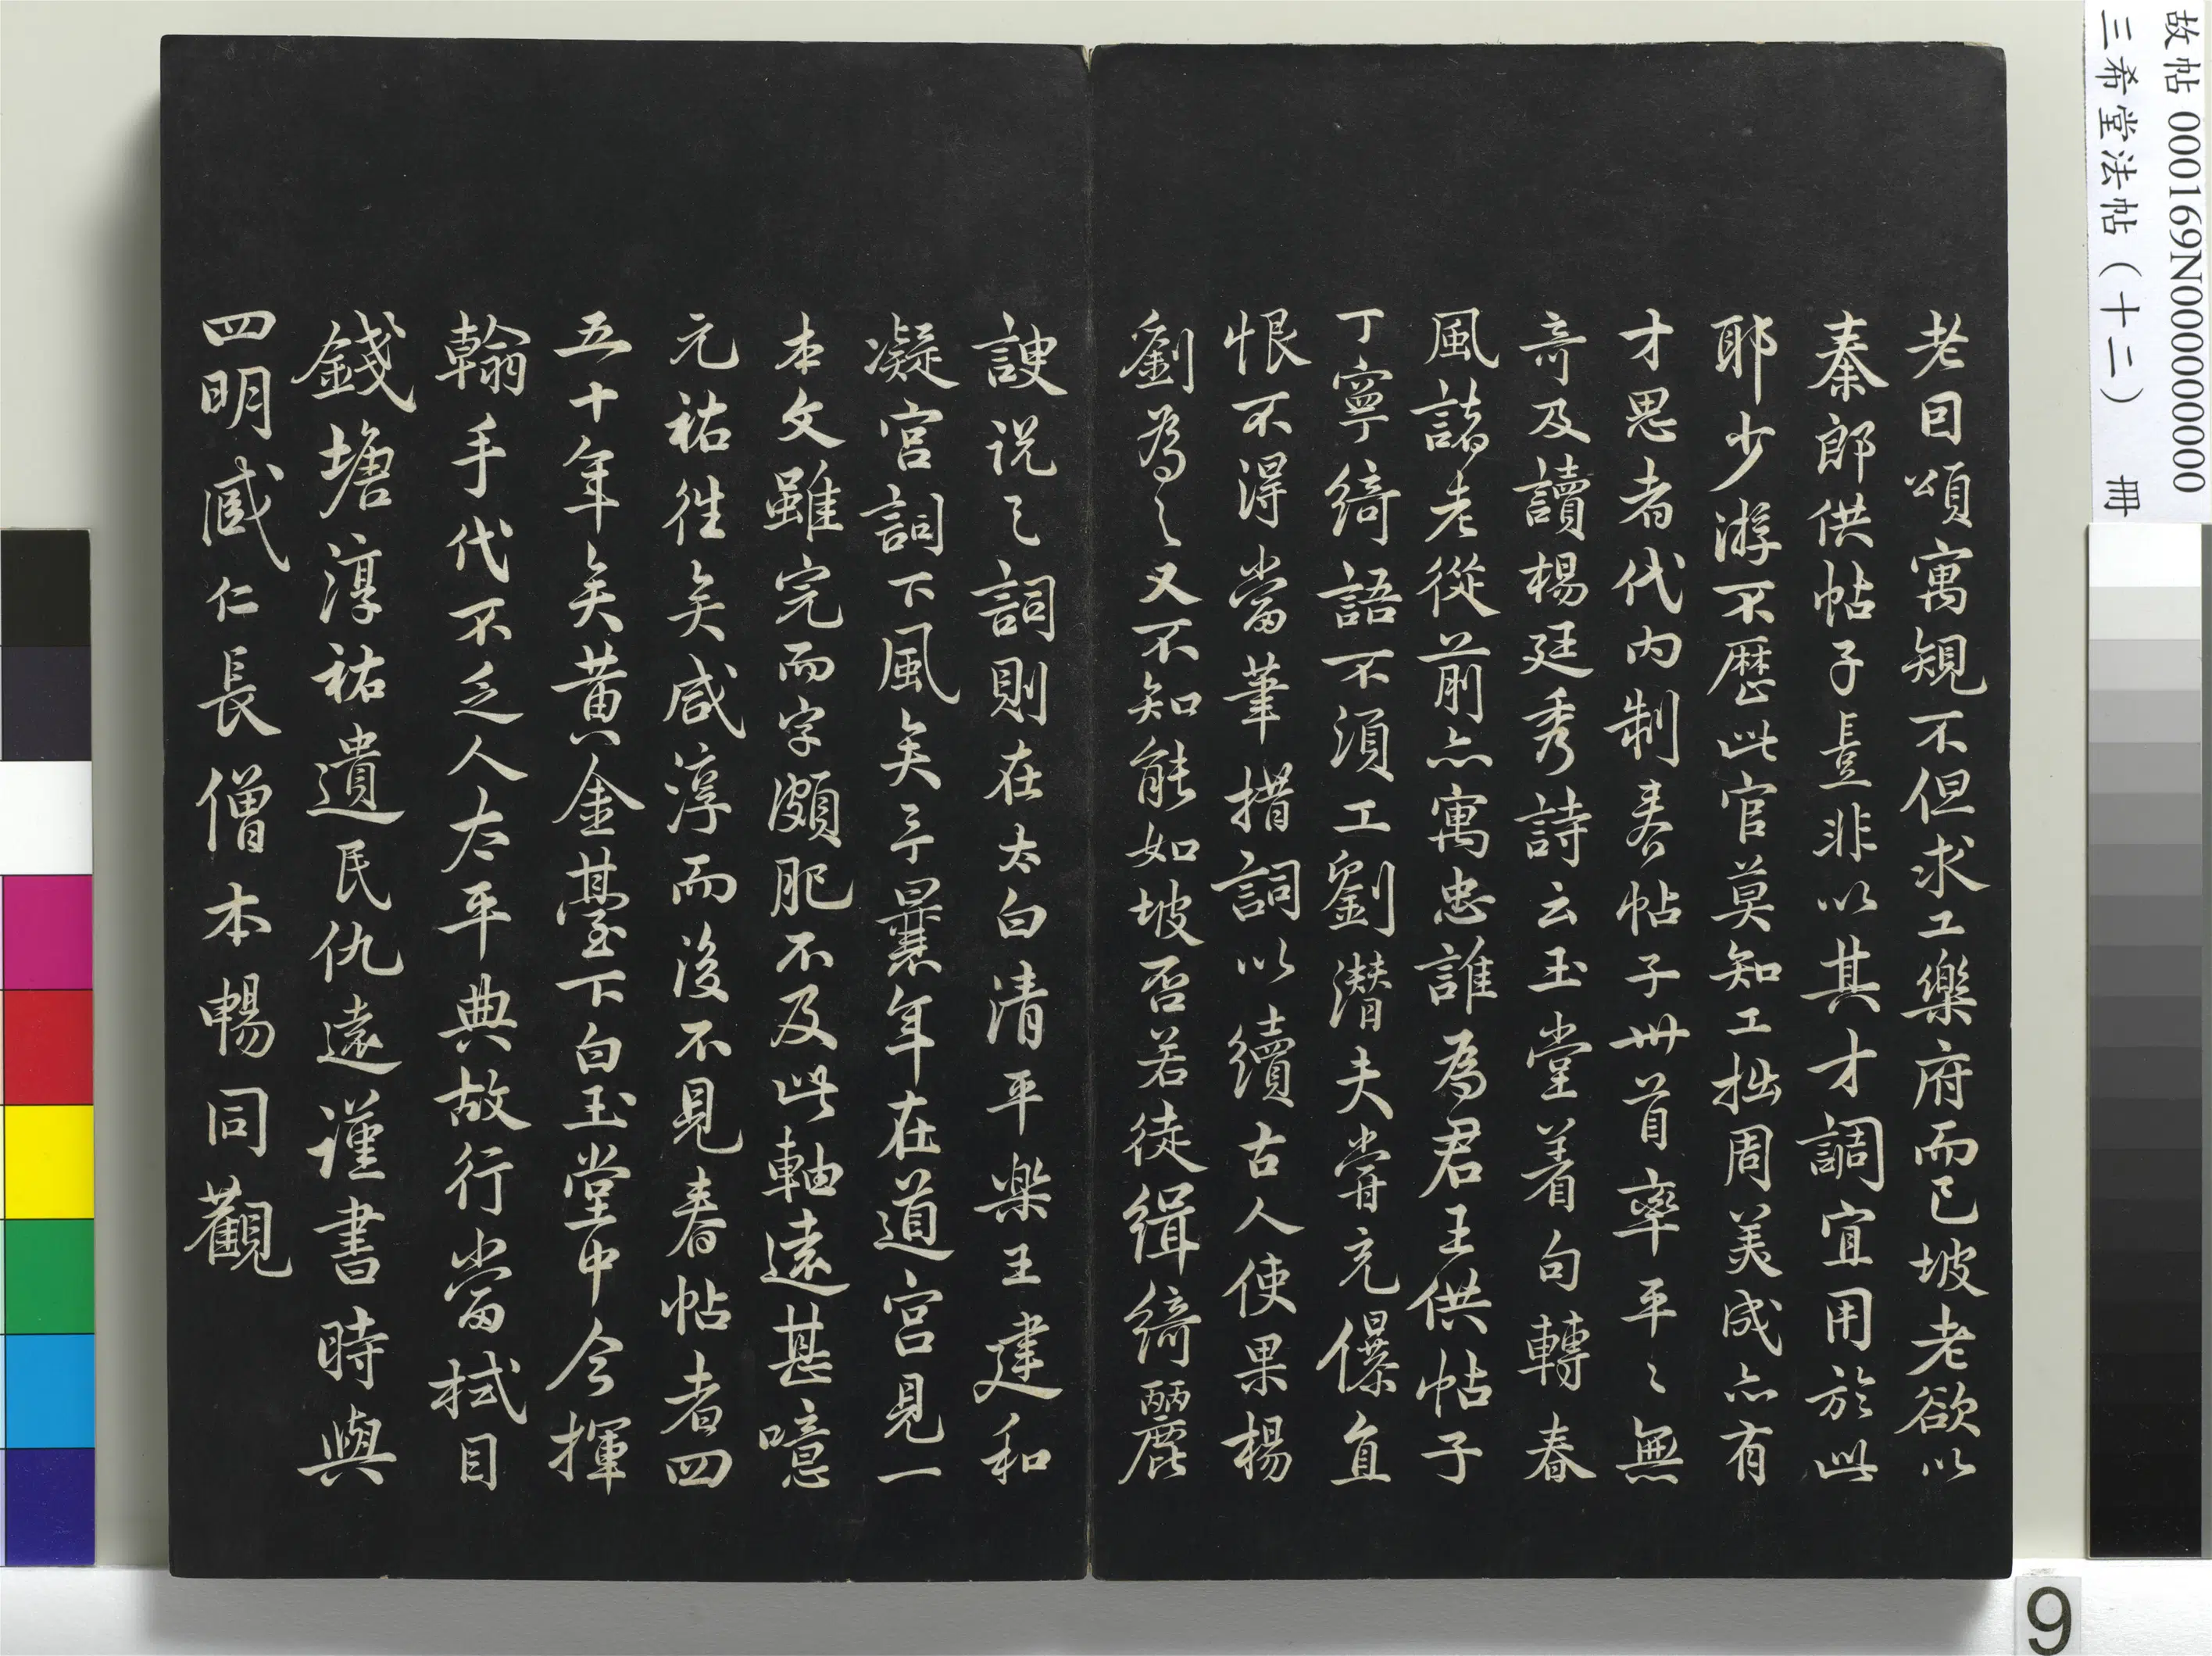 故帖 000169N000000000
三希堂法帖（十二） 冊
老因頌寓規不但求工樂府而已坡老欲以
秦郎供帖子豈非以其才調宜用於此
耶少游不歷此官莫知工拙周美成亦有
才思者代內制春帖子卅首率平〻無
奇及讀楊廷秀詩云玉堂着句轉春
風諸老從前亦寓忠誰為君王供帖子
丁寧綺語不須工劉潛夫嘗充儤直
恨不得當筆措詞以續古人使果楊
劉為之又不知能如坡否若徒緝綺麗
謏說之詞則在太白清平樂王建和
凝宮詞下風矣予曩年在道宮見一
本文雖完而字頗肥不及此軸遠甚噫
元祐徃矣咸淳而後不見春帖者四
五十年矣黃金臺下白玉堂中今揮
翰手代不乏人太平典故行當拭目
錢塘淳祐遺民仇遠謹書時與
四明臧仁長僧本暢同觀
9